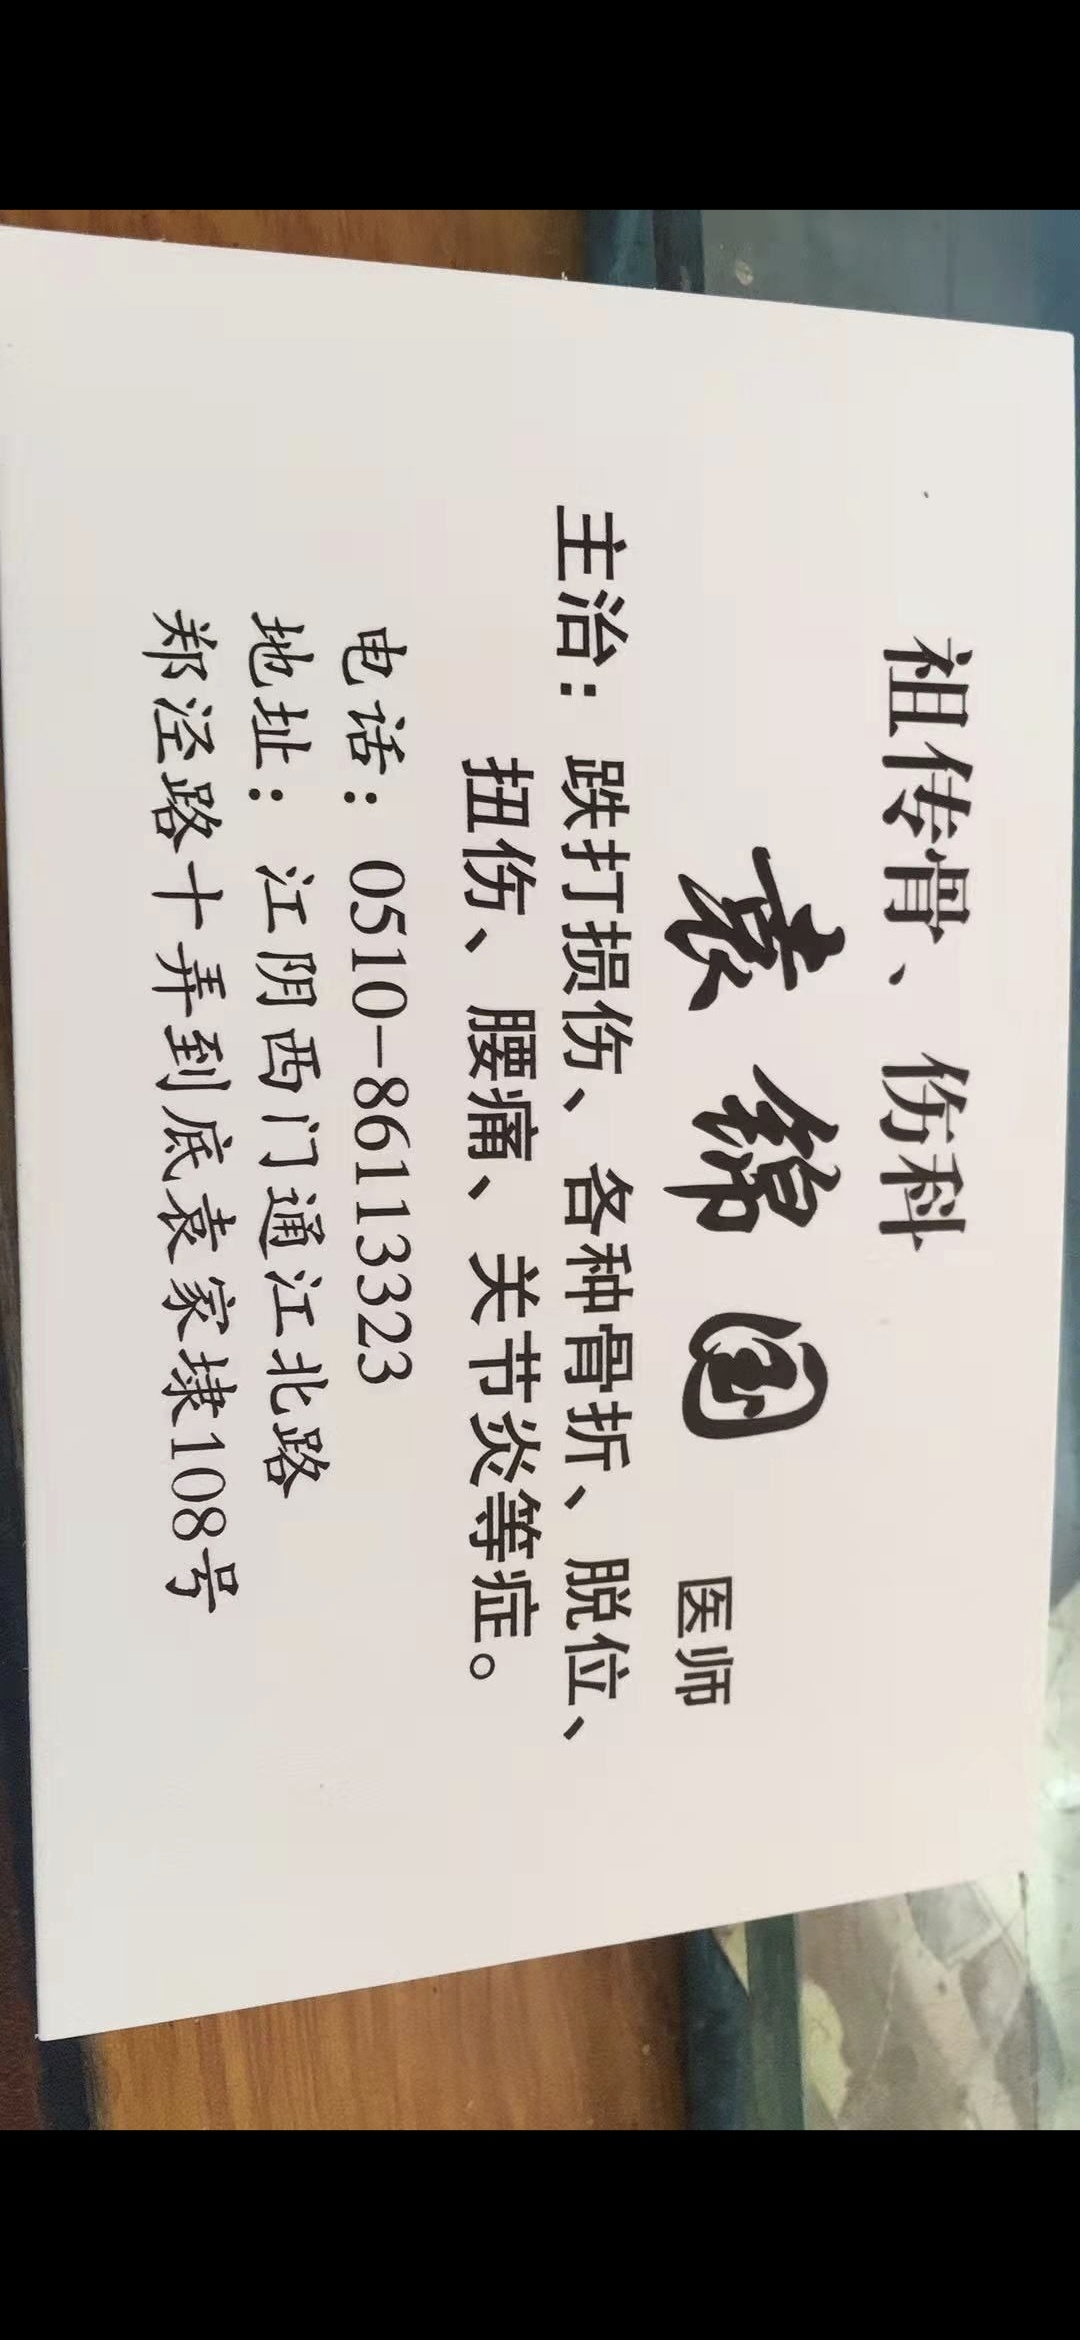 祖传骨、伤科
袁绵国 医师
主治：跌打损伤、各种骨折、脱位、
扭伤、腰痛、关节炎等症。
电话：0510-86113323
地址：江阴西门通江北路
郑泾路十弄到底袁家埭108号